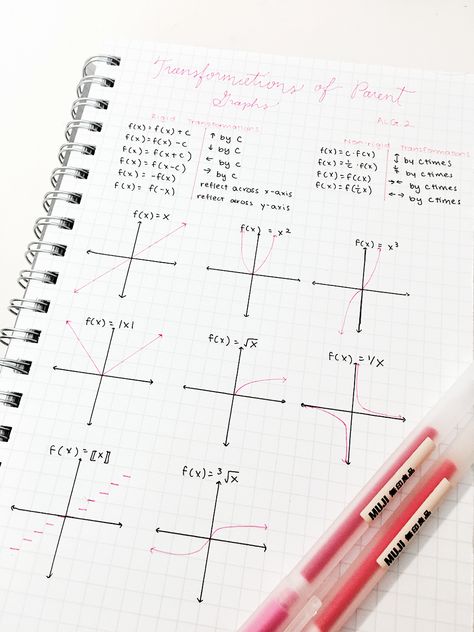 Transformations of Parent
Graphs
ALG. 2
Rigid Transformations
f(x) = f(x) + c ↑ by c
f(x) = f(x) - c ↓ by c
f(x) = f(x + c) ← by c
f(x) = f(x - c) → by c
f(x) = -f(x) reflect across x-axis
f(x) = f(-x) reflect across y-axis
Non rigid Transformations
f(x) = c · f(x) ↕ by c times
f(x) = 1/c · f(x) by c times
f(x) = f(cx) →← by c times
f(x) = f(1/c x) ←→ by c times
f(x) = x
f(x) = x²
f(x) = x³
f(x) = |x|
f(x) = √x
f(x) = 1/x
f(x) = [[x]]
f(x) = ³√x
MUJI 無印良品
MUJI 無印良品